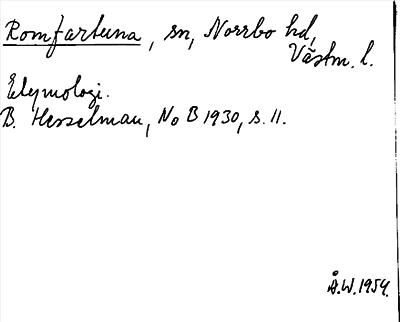 Romfartuna, sn, Norrbo hd,
Västm. l.
Etymologi.
B. Hesselman, NoB 1930, s. 11.
Å.W. 1954.